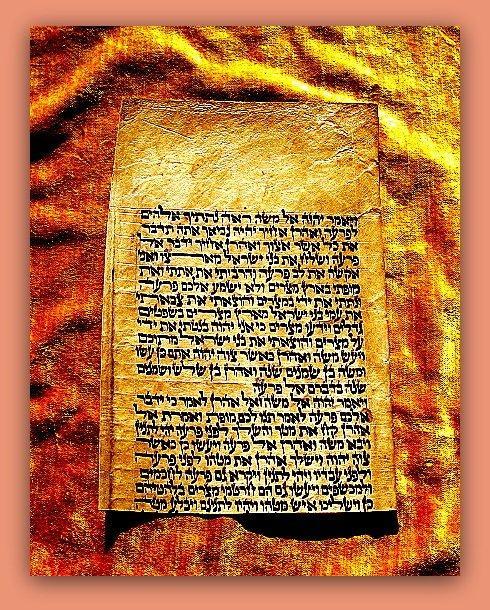 ויאמר יהוה אל משה ראה נתתיך אלהים
לפרעה ואהרן אחיך יהיה נביאך אתה תדבר
את כל אשר אצוך ואהרן אחיך ידבר אל
פרעה ושלח את בני ישראל מארצו ואני
אקשה את לב פרעה והרביתי את אתתי ואת
מופתי בארץ מצרים ולא ישמע אלכם פרעה
ונתתי את ידי במצרים והוצאתי את צבאתי
את עמי בני ישראל מארץ מצרים בשפטים
גדלים וידעו מצרים כי אני יהוה בנטתי את ידי
על מצרים והוצאתי את בני ישראל מתוכם
ויעש משה ואהרן כאשר צוה יהוה אתם כן עשו
ומשה בן שמנים שנה ואהרן בן שלש ושמנים
שנה בדברם אל פרעה
ויאמר יהוה אל משה ואל אהרן לאמר כי ידבר
אלכם פרעה לאמר תנו לכם מופת ואמרת אל
אהרן קח את מטך והשלך לפני פרעה יהי לתנין
ויבא משה ואהרן אל פרעה ויעשו כן כאשר
צוה יהוה וישלך אהרן את מטהו לפני פרעה
ולפני עבדיו ויהי לתנין ויקרא גם פרעה לחכמים
ולמכשפים ויעשו גם הם חרטמי מצרים בלהטיהם
כן וישליכו איש מטהו ויהיו לתנינם ויבלע מטה